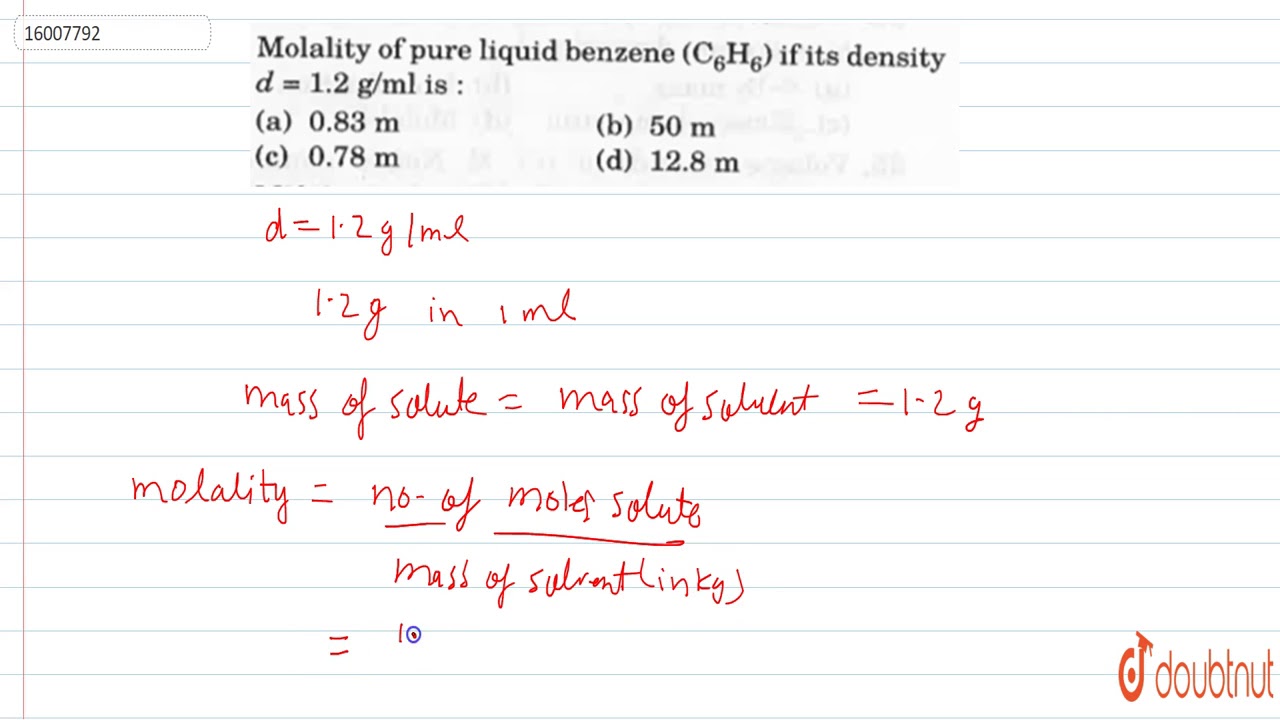 16007792
Molality of pure liquid benzene (C₆H₆) if its density
d = 1.2 g/ml is :
(a) 0.83 m (b) 50 m
(c) 0.78 m (d) 12.8 m
d = 1.2 g/ml
1.2g in 1 ml
mass of solute = mass of solvent = 1.2 g
molality = no. of moles solute
mass of solvent (in kg)
= 1
doubtnut